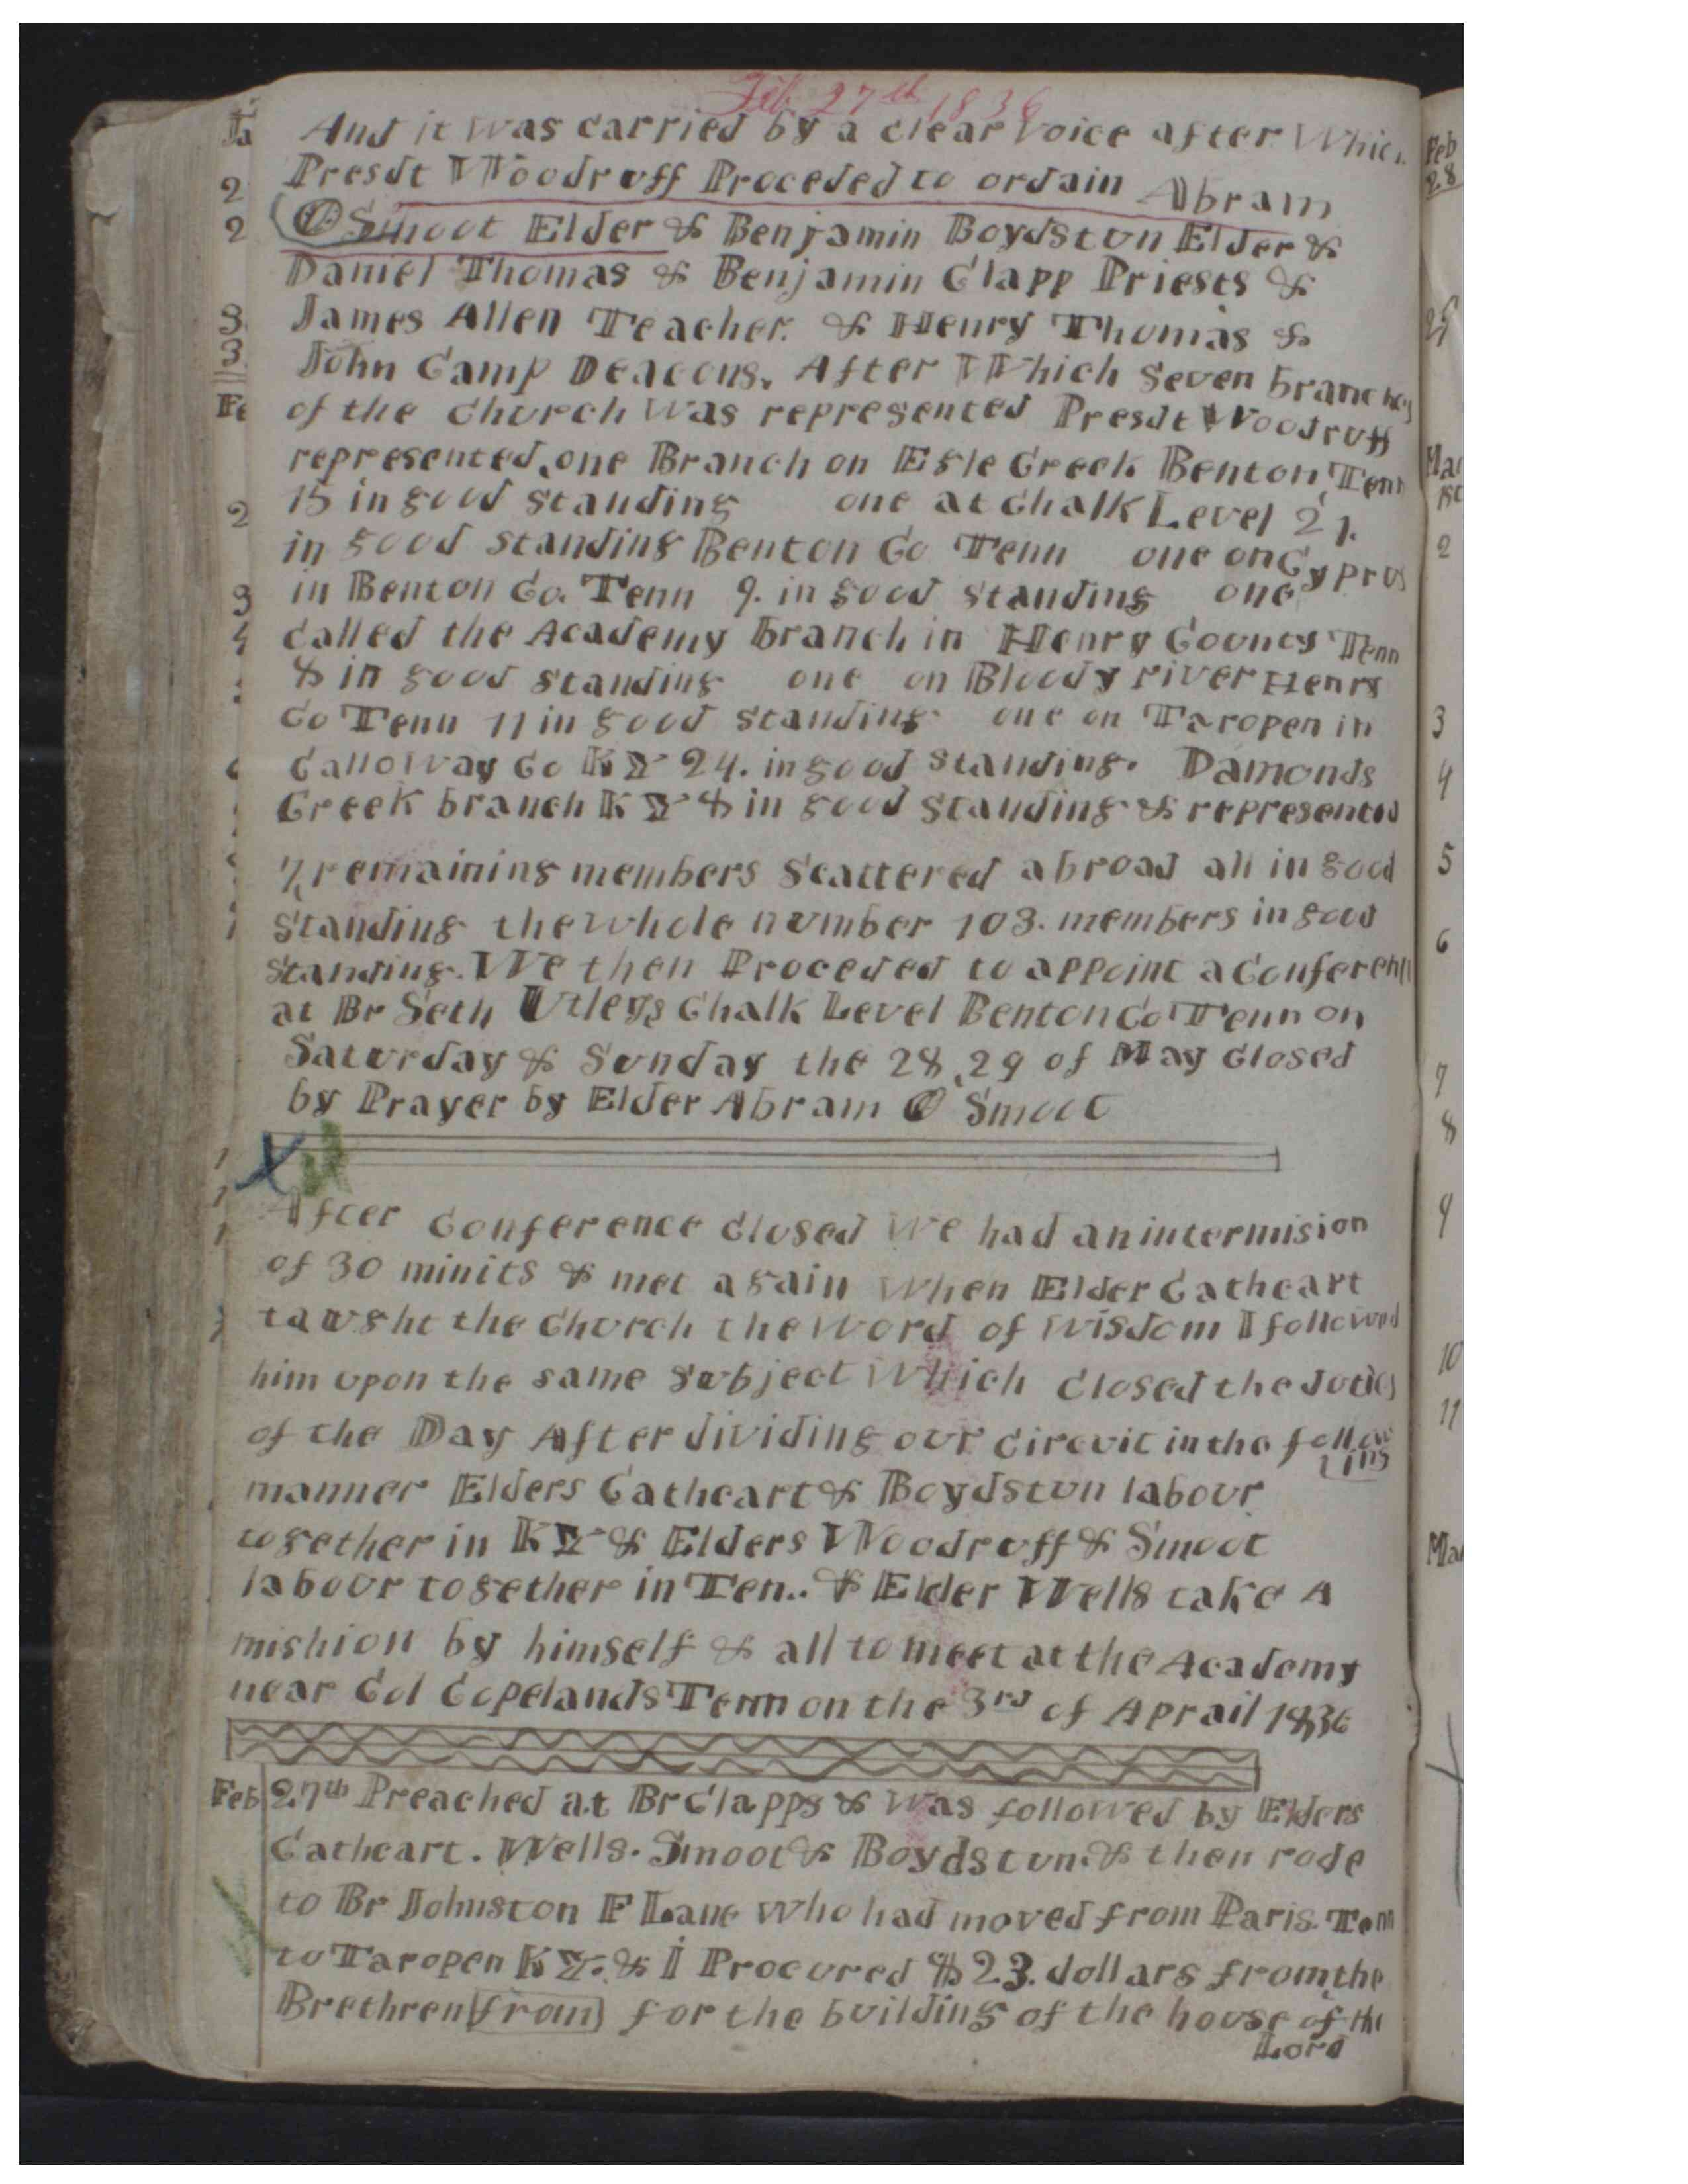 Feb 27th 1836
And it was carried by a clear voice after Which
Presdt Woodruff Proceded to ordain Abram
O Smoot Elder & Benjamin Boydstun Elder &
Daniel Thomas & Benjamin Clapp Priests &
James Allen Teacher. & Henry Thomas &
John Camp Deacons. After Which Seven branches
of the church was represented Presdt Woodruff
represented, one Branch on Egle Creek Benton, Tenn
15 in good standing one at Chalk Level 21.
in good standing Benton Co Tenn one on Cyprus
in Benton Co. Tenn 9. in good standing one
called the Academy branch in Henry County Tenn
8 in good standing one on Bloody river Henry
Co Tenn 11 in good standing one on Taropen in
Calloway Co KY 24. in good standing. Damonds
Creek branch KY 8 in good standing & represented
7, remaining members scattered abroad all in good
standing the whole number 103. members in good
standing. We then Proceded to appoint a Conference
at Br Seth Utleys Chalk Level Benton Co Tenn on
Saturday & Sunday the 28, 29 of May closed
by Prayer by Elder Abram O Smoot
After Conference closed we had an intermision
of 30 minits & met again when Elder Cathcart
tawght the church the word of wisdom I followed
him upon the same subject Which closed the duties
of the Day After dividing our circuit in the follow
ing
manner Elders Cathcart & Boydstun labour
together in KY & Elders Woodruff & Smoot
labour together in Ten.. & Elder Wells take A
mishion by himself & all to meet at the Academy
near Col Copelands Tenn on the 3rd of Aprail 1836
Feb 27th Preached at Br Clapps & was followed by Elders
Cathcart. Wells. Smoot & Boydstun. & then rode
to Br Johnston F Lane who had moved from Paris. Tenn
to Taropen KY. & I Procured $23. dollars from, the
Brethren from for the building of the house of the
Lord